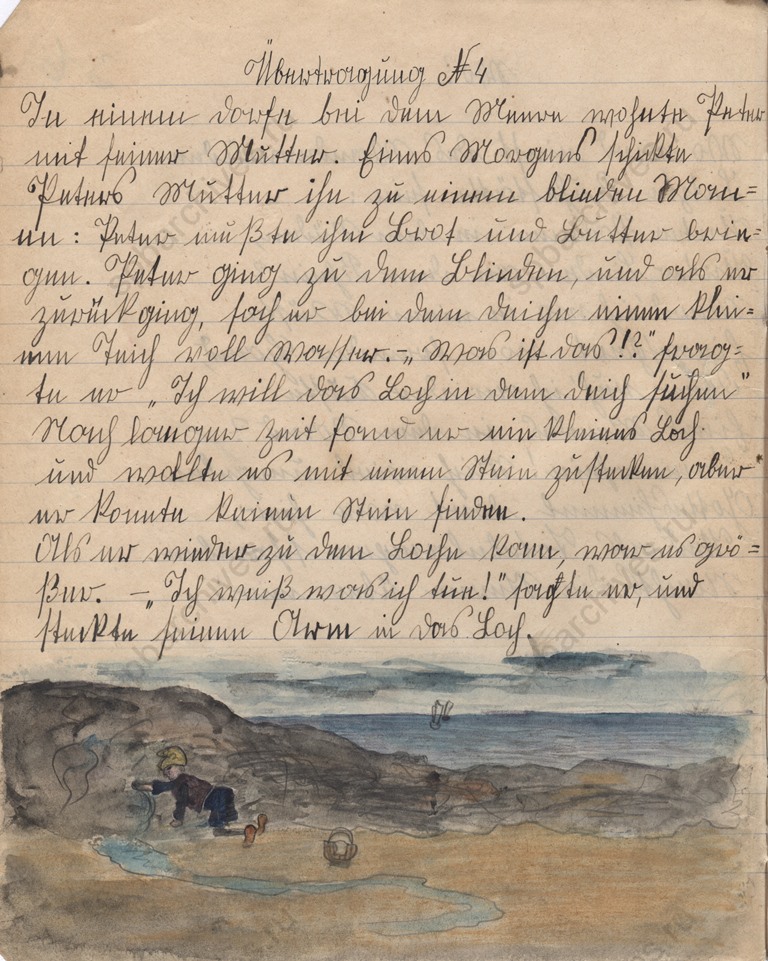 Übertragung № 4
In einem dorfe bei dem Meere wohnte Peter
mit seiner Mutter. Eines Morgens schickte
Peters Mutter ihn zu einem blinden Man=
en: Peter mußte ihm Brot und Butter brin=
gen. Peter ging zu dem Blinden, und als er
zurückging, sach er bei dem deiche einen klei=
nen Teich voll Wasser. – „Was ist das!?" frag=
te er „Ich will das Loch in dem deich suchen"
Nach langer zeit fand er ein kleines Loch
und wollte es mit einem Stein zustecken, aber
er konnte keinen Stein finden.
Als er wieder zu dem Loche kam, war es grö=
ßer. – „Ich weiß was ich tue!" sagte er, und
steckte seinen Arm in das Loch.